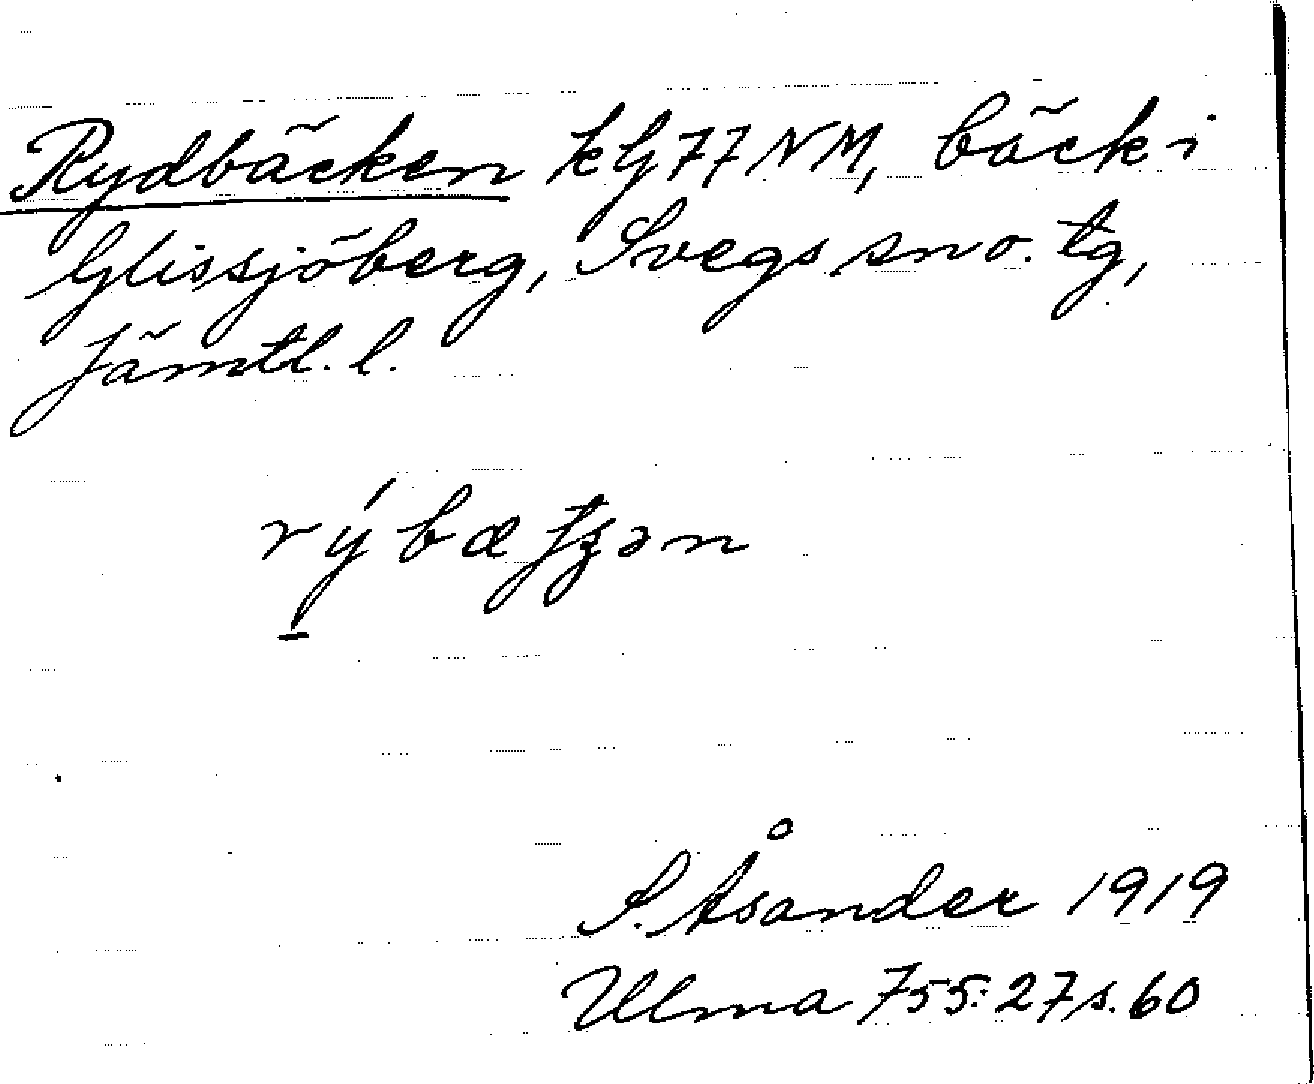 Rydbäcken kG 77 NM, bäck i
Glissjöberg, Svegs sn o. tg,
Jämtl. l.
rýbætʒən
S. Åsander 1919
Ulma 755:27 s. 60